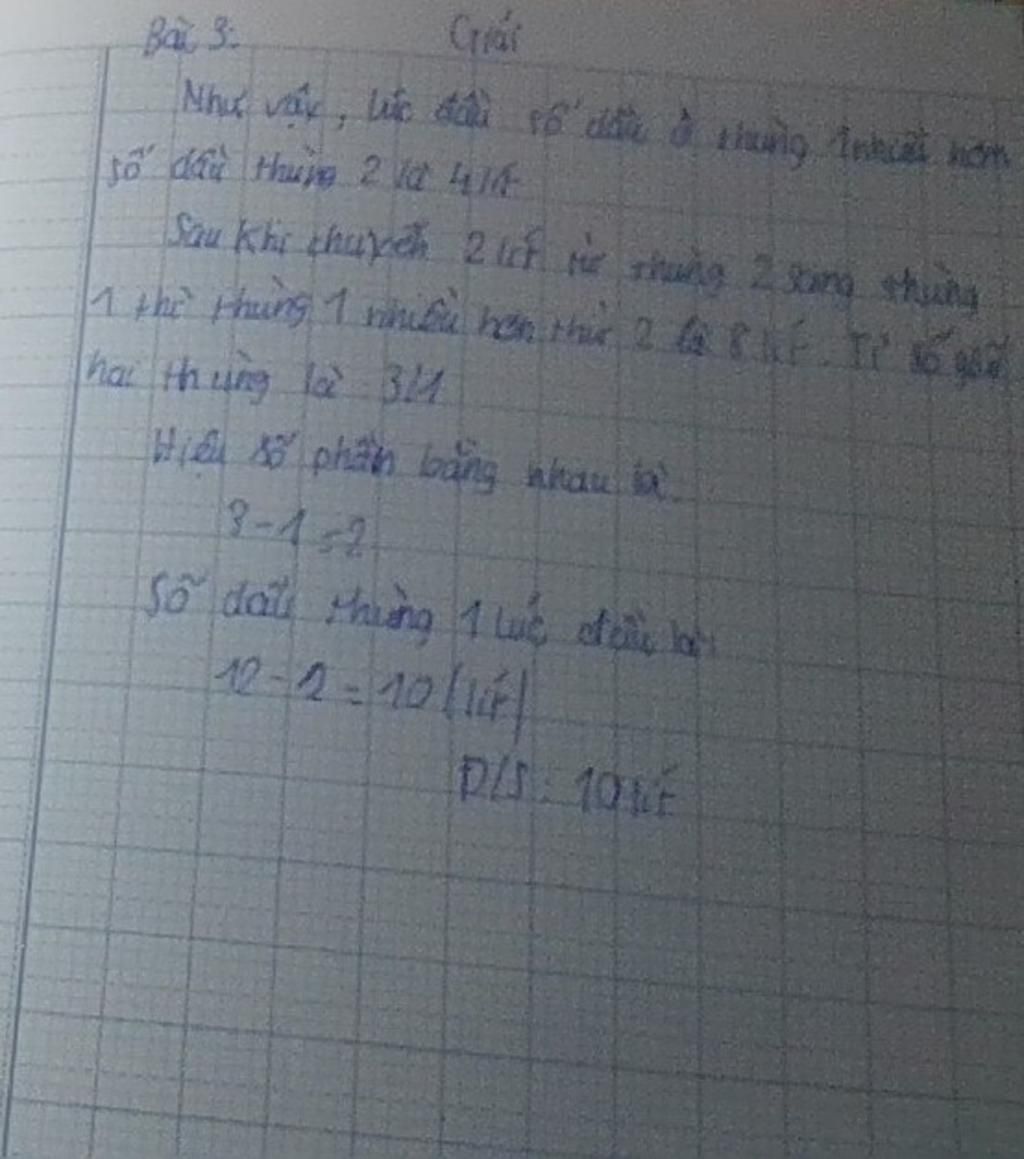 Bài 3: Giải
Như vậy, lúc đầu số dầu ở thùng 1 nhiều hơn
số dầu thùng 2 là 4 lít
Sau khi chuyển 2 lít từ thùng 2 sang thùng
1 thì thùng 1 nhiều hơn thứ 2 là 8 lít. Tỉ số giữa
hai thùng là 3/1
Hiệu số phần bằng nhau là
3-1=2
Số dầu thùng 1 lúc đầu là
12-2=10(lít)
Đ/S: 10 lít